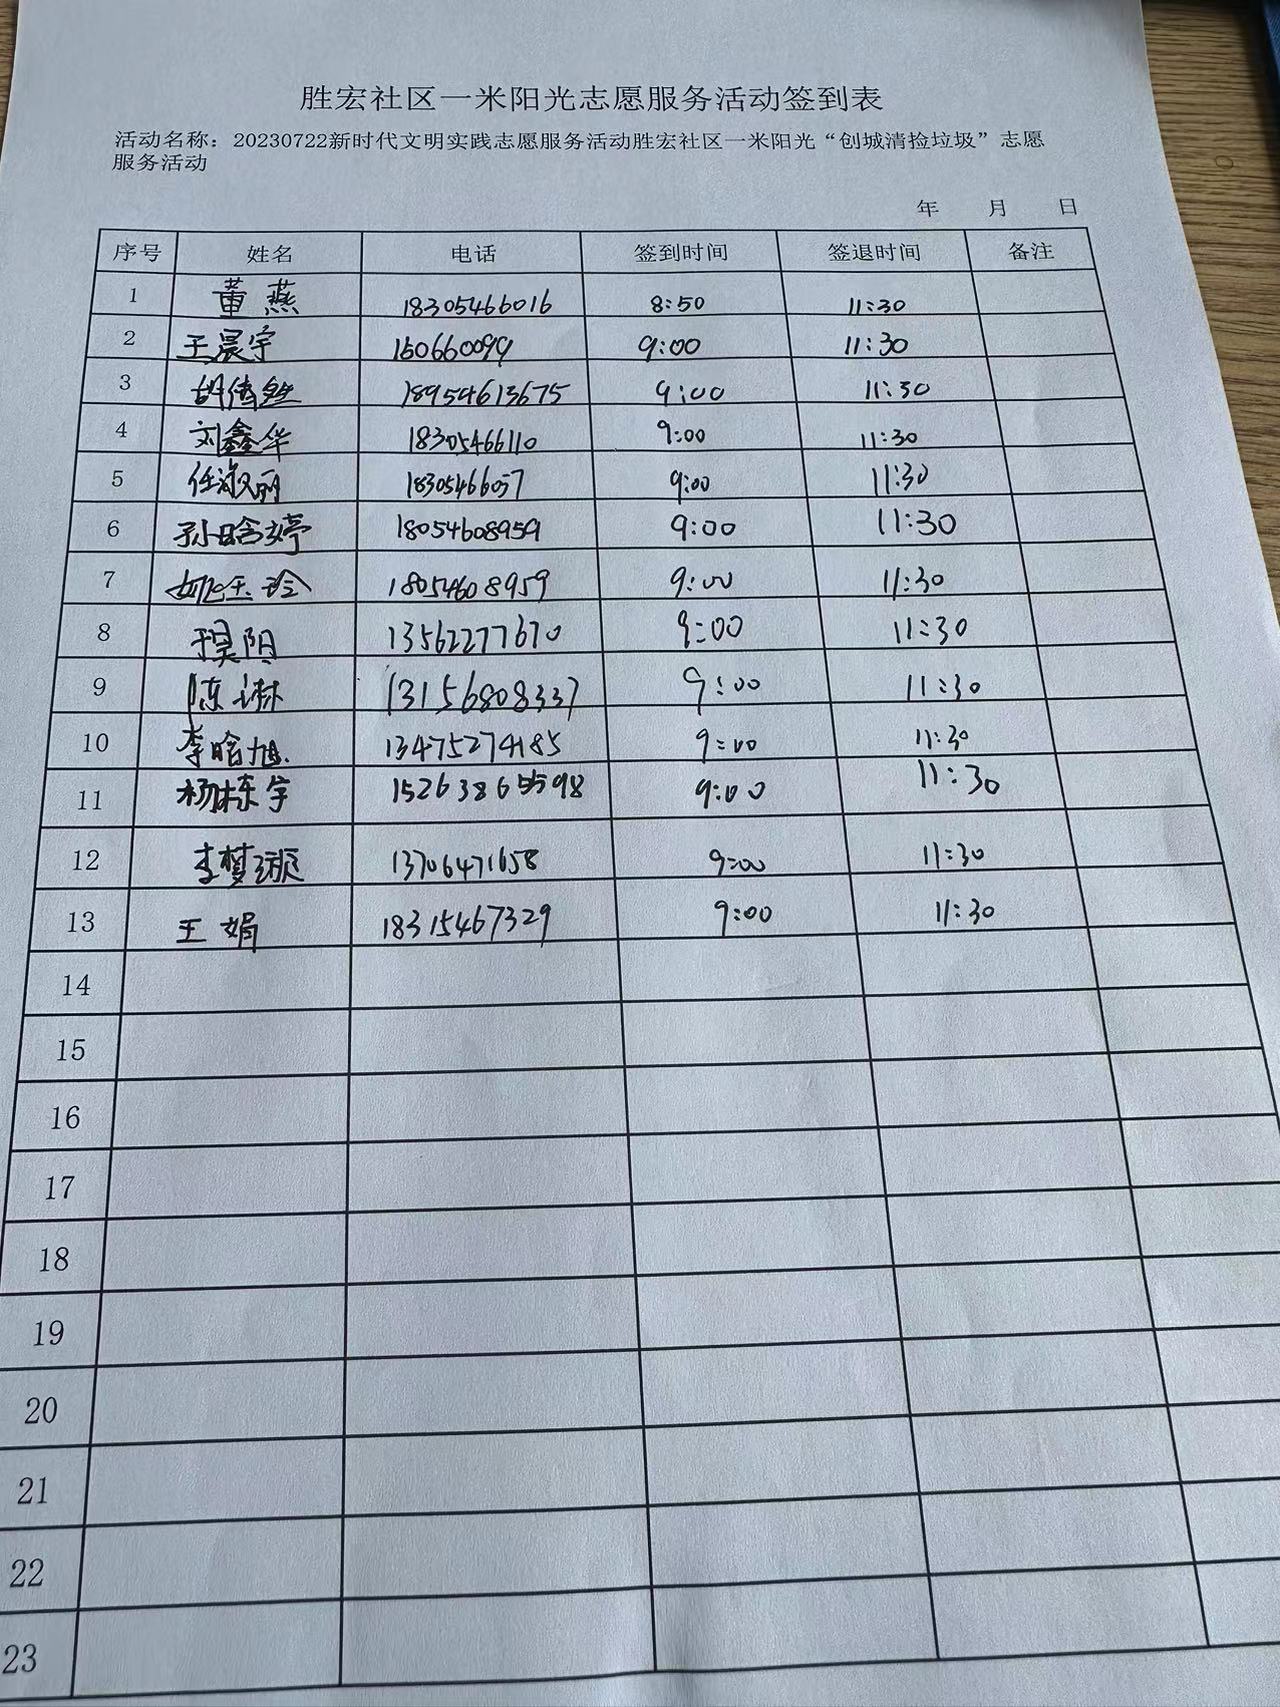 胜宏社区一米阳光志愿服务活动签到表
活动名称：20230722新时代文明实践志愿服务活动胜宏社区一米阳光“创城清捡垃圾”志愿
服务活动
年 月 日
序号 姓名 电话 签到时间 签退时间 备注
1 董燕 18305466016 8:50 11:30
2 王晨宇 150660099 9:00 11:30
3 胡倩 18954613675 9:00 11:30
4 刘鑫华 18305466110 9:00 11:30
5 任淑丽 18305466057 9:00 11:30
6 孙晗婷 18054608959 9:00 11:30
7 姚玉玲 18054608959 9:00 11:30
8 阳 13562277670 9:00 11:30
9 陈琳 13156808337 9:00 11:30
10 李晗旭 13475274185 9:00 11:30
11 杨栋宇 15263865598 9:00 11:30
12 李梦璇 13706471658 9:00 11:30
13 王娟 18315467329 9:00 11:30
14
15
16
17
18
19
20
21
22
23